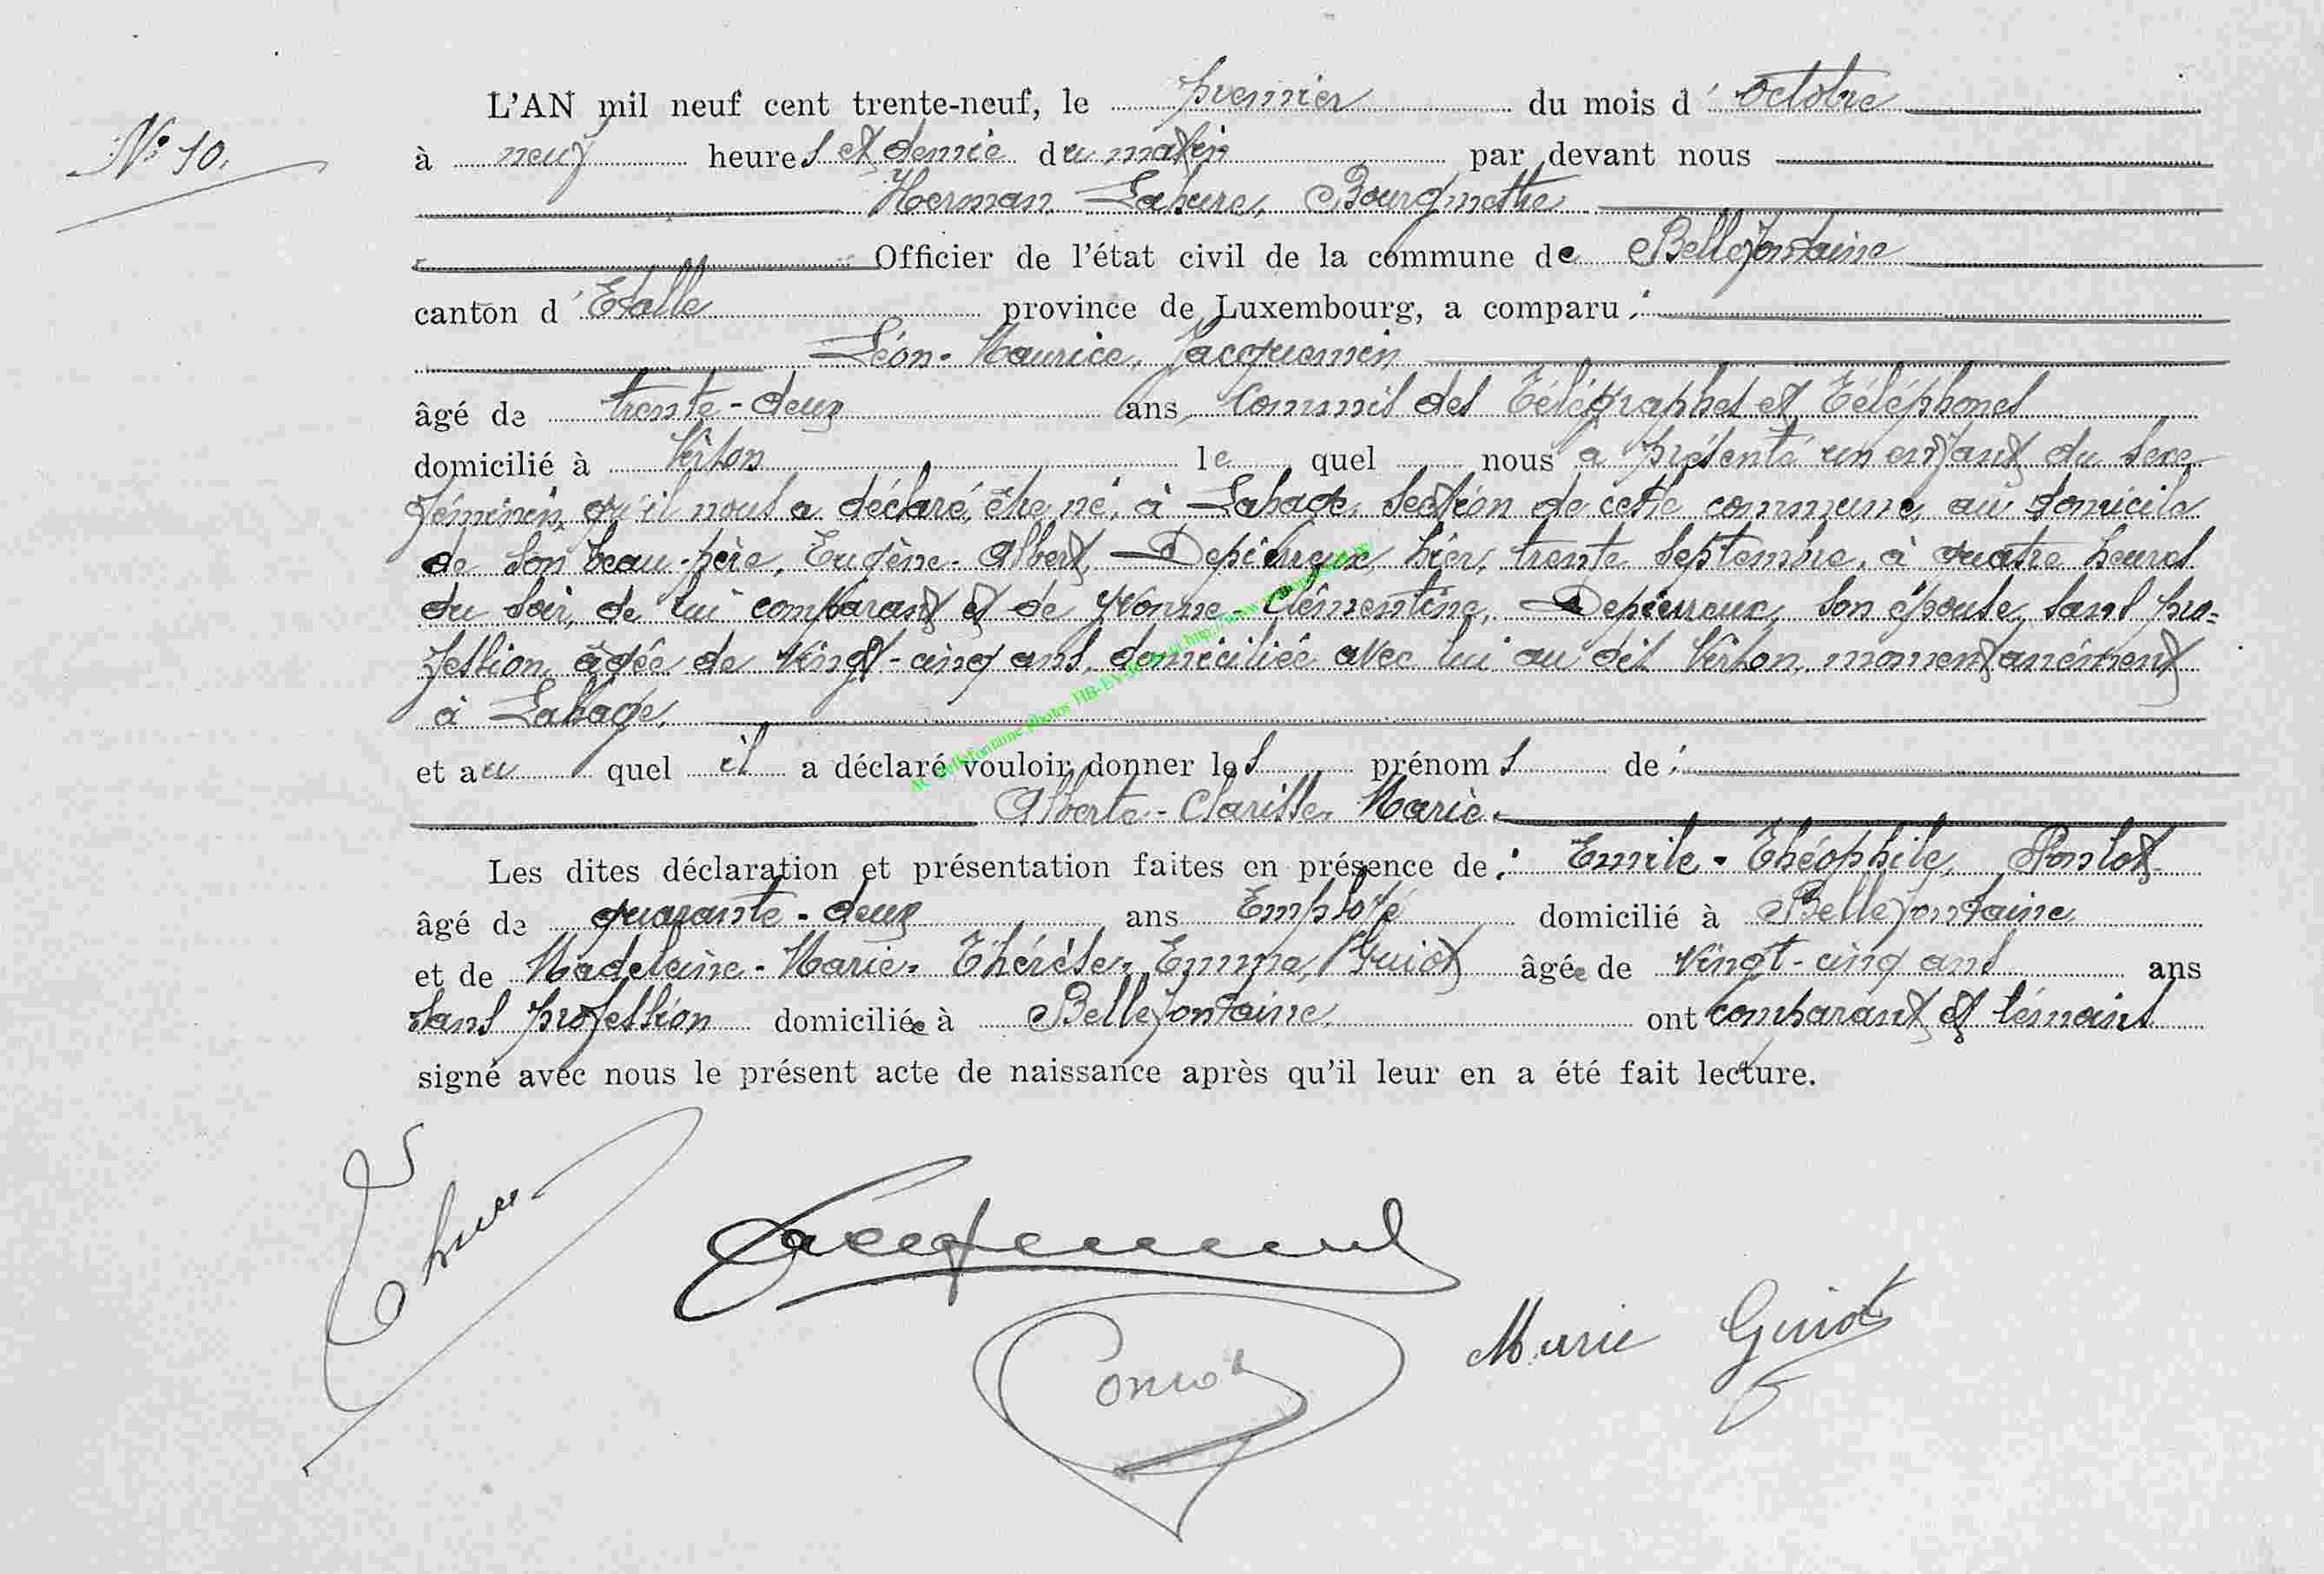 L'AN mil neuf cent trente-neuf, le premier du mois d'octobre
N° 10.
à neuf heures et demie du matin par devant nous
Herman Lahure, Bourgmestre
Officier de l'état civil de la commune de Bellefontaine
canton d'Etalle province de Luxembourg, a comparu :
Léon-Maurice, Jacquemin
âgé de trente-deux ans, Commis des Télégraphes et Téléphones
domicilié à Virton lequel nous a présenté un enfant du sexe
féminin, qu'il nous a déclaré, être né, à Lahage, section de cette commune, au domicile
de son beau-père, Eugène-Albert, Depierreux, hier, trente septembre, à quatre heures
du soir, de lui comparant et de Yvonne-Clémentine, Depierreux, son épouse, sans pro=
fession, âgée de vingt-cinq ans, domiciliée avec lui au dit Virton, momentanément
à Lahage.
et auquel il a déclaré vouloir donner les prénoms de :
Alberte-Clarisse-Marie.
Les dites déclaration et présentation faites en présence de : Emile-Théophile, Ponlot
âgé de quarante-deux ans Employé domicilié à Bellefontaine
et de Madeleine-Marie-Thérèse-Emma, Guiot âgée de vingt-cinq ans ans
sans profession domiciliée à Bellefontaine. ont comparant et témoins
signé avec nous le présent acte de naissance après qu'il leur en a été fait lecture.
Jacquemin
Marie Guiot